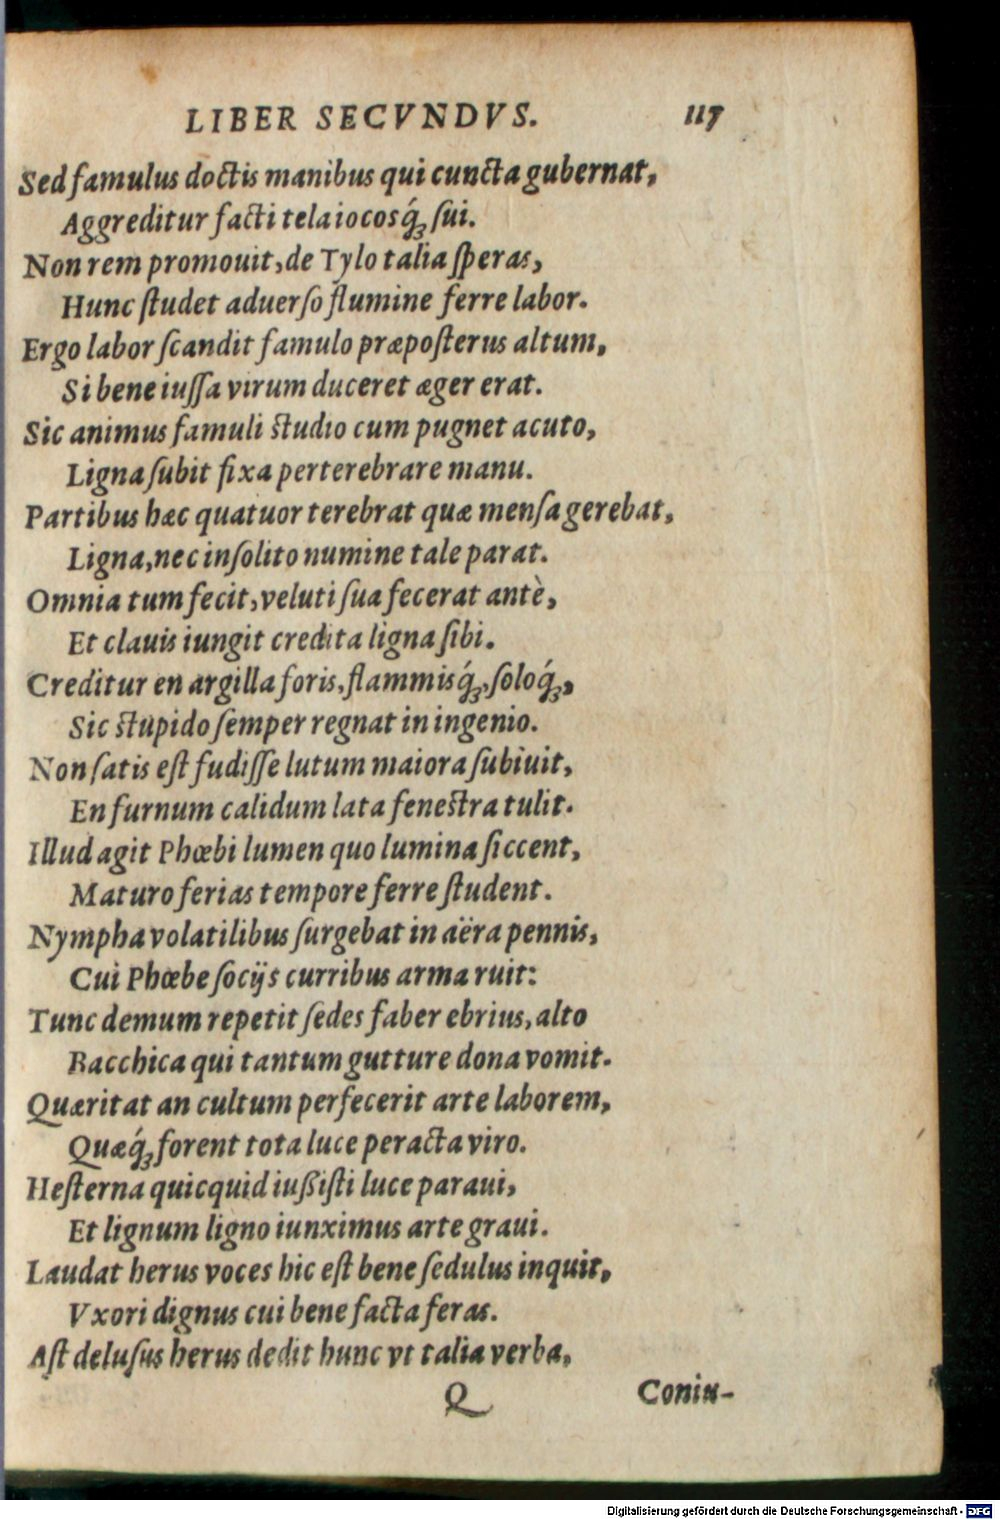 LIBER SECVNDVS. 117
Sed famulus doctis manibus qui cuncta gubernat,
Aggreditur facti tela iocosq́ꝫ sui.
Non rem promouit, de Tylo talia ſperas,
Hunc ſtudet aduerſo flumine ferre labor.
Ergo labor ſcandit famulo præpoſterus altum,
Si bene iuſſa virum duceret æger erat.
Sic animus famuli ſtudio cum pugnet acuto,
Ligna ſubit fixa perterebrare manu.
Partibus hæc quatuor terebrat quæ menſa gerebat,
Ligna, nec inſolito numine tale parat.
Omnia tum fecit, veluti ſua fecerat antè,
Et clauis iungit credita ligna ſibi.
Creditur en argilla foris, flammisq́ꝫ, ſoloq́ꝫ,
Sic ſtupido ſemper regnat in ingenio.
Non ſatis eſt fudiſſe lutum maiora ſubiuit,
En furnum calidum lata feneſtra tulit.
Illud agit Phœbi lumen quo lumina ſiccent,
Maturo ferias tempore ferre ſtudent.
Nympha volatilibus ſurgebat in aëra pennis,
Cui Phœbe ſocijs curribus arma ruit:
Tunc demum repetit ſedes faber ebrius, alto
Bacchica qui tantum gutture dona vomit.
Quæritat an cultum perfecerit arte laborem,
Quæq́ꝫ forent tota luce peracta viro.
Heſterna quicquid iußiſti luce paraui,
Et lignum ligno iunximus arte graui.
Laudat herus voces hic eſt bene ſedulus inquit,
Vxori dignus cui bene facta feras.
Aſt deluſus herus dedit hunc vt talia verba,
Q Coniu-
Digitalisierung gefördert durch die Deutsche Forschungsgemeinschaft - DFG